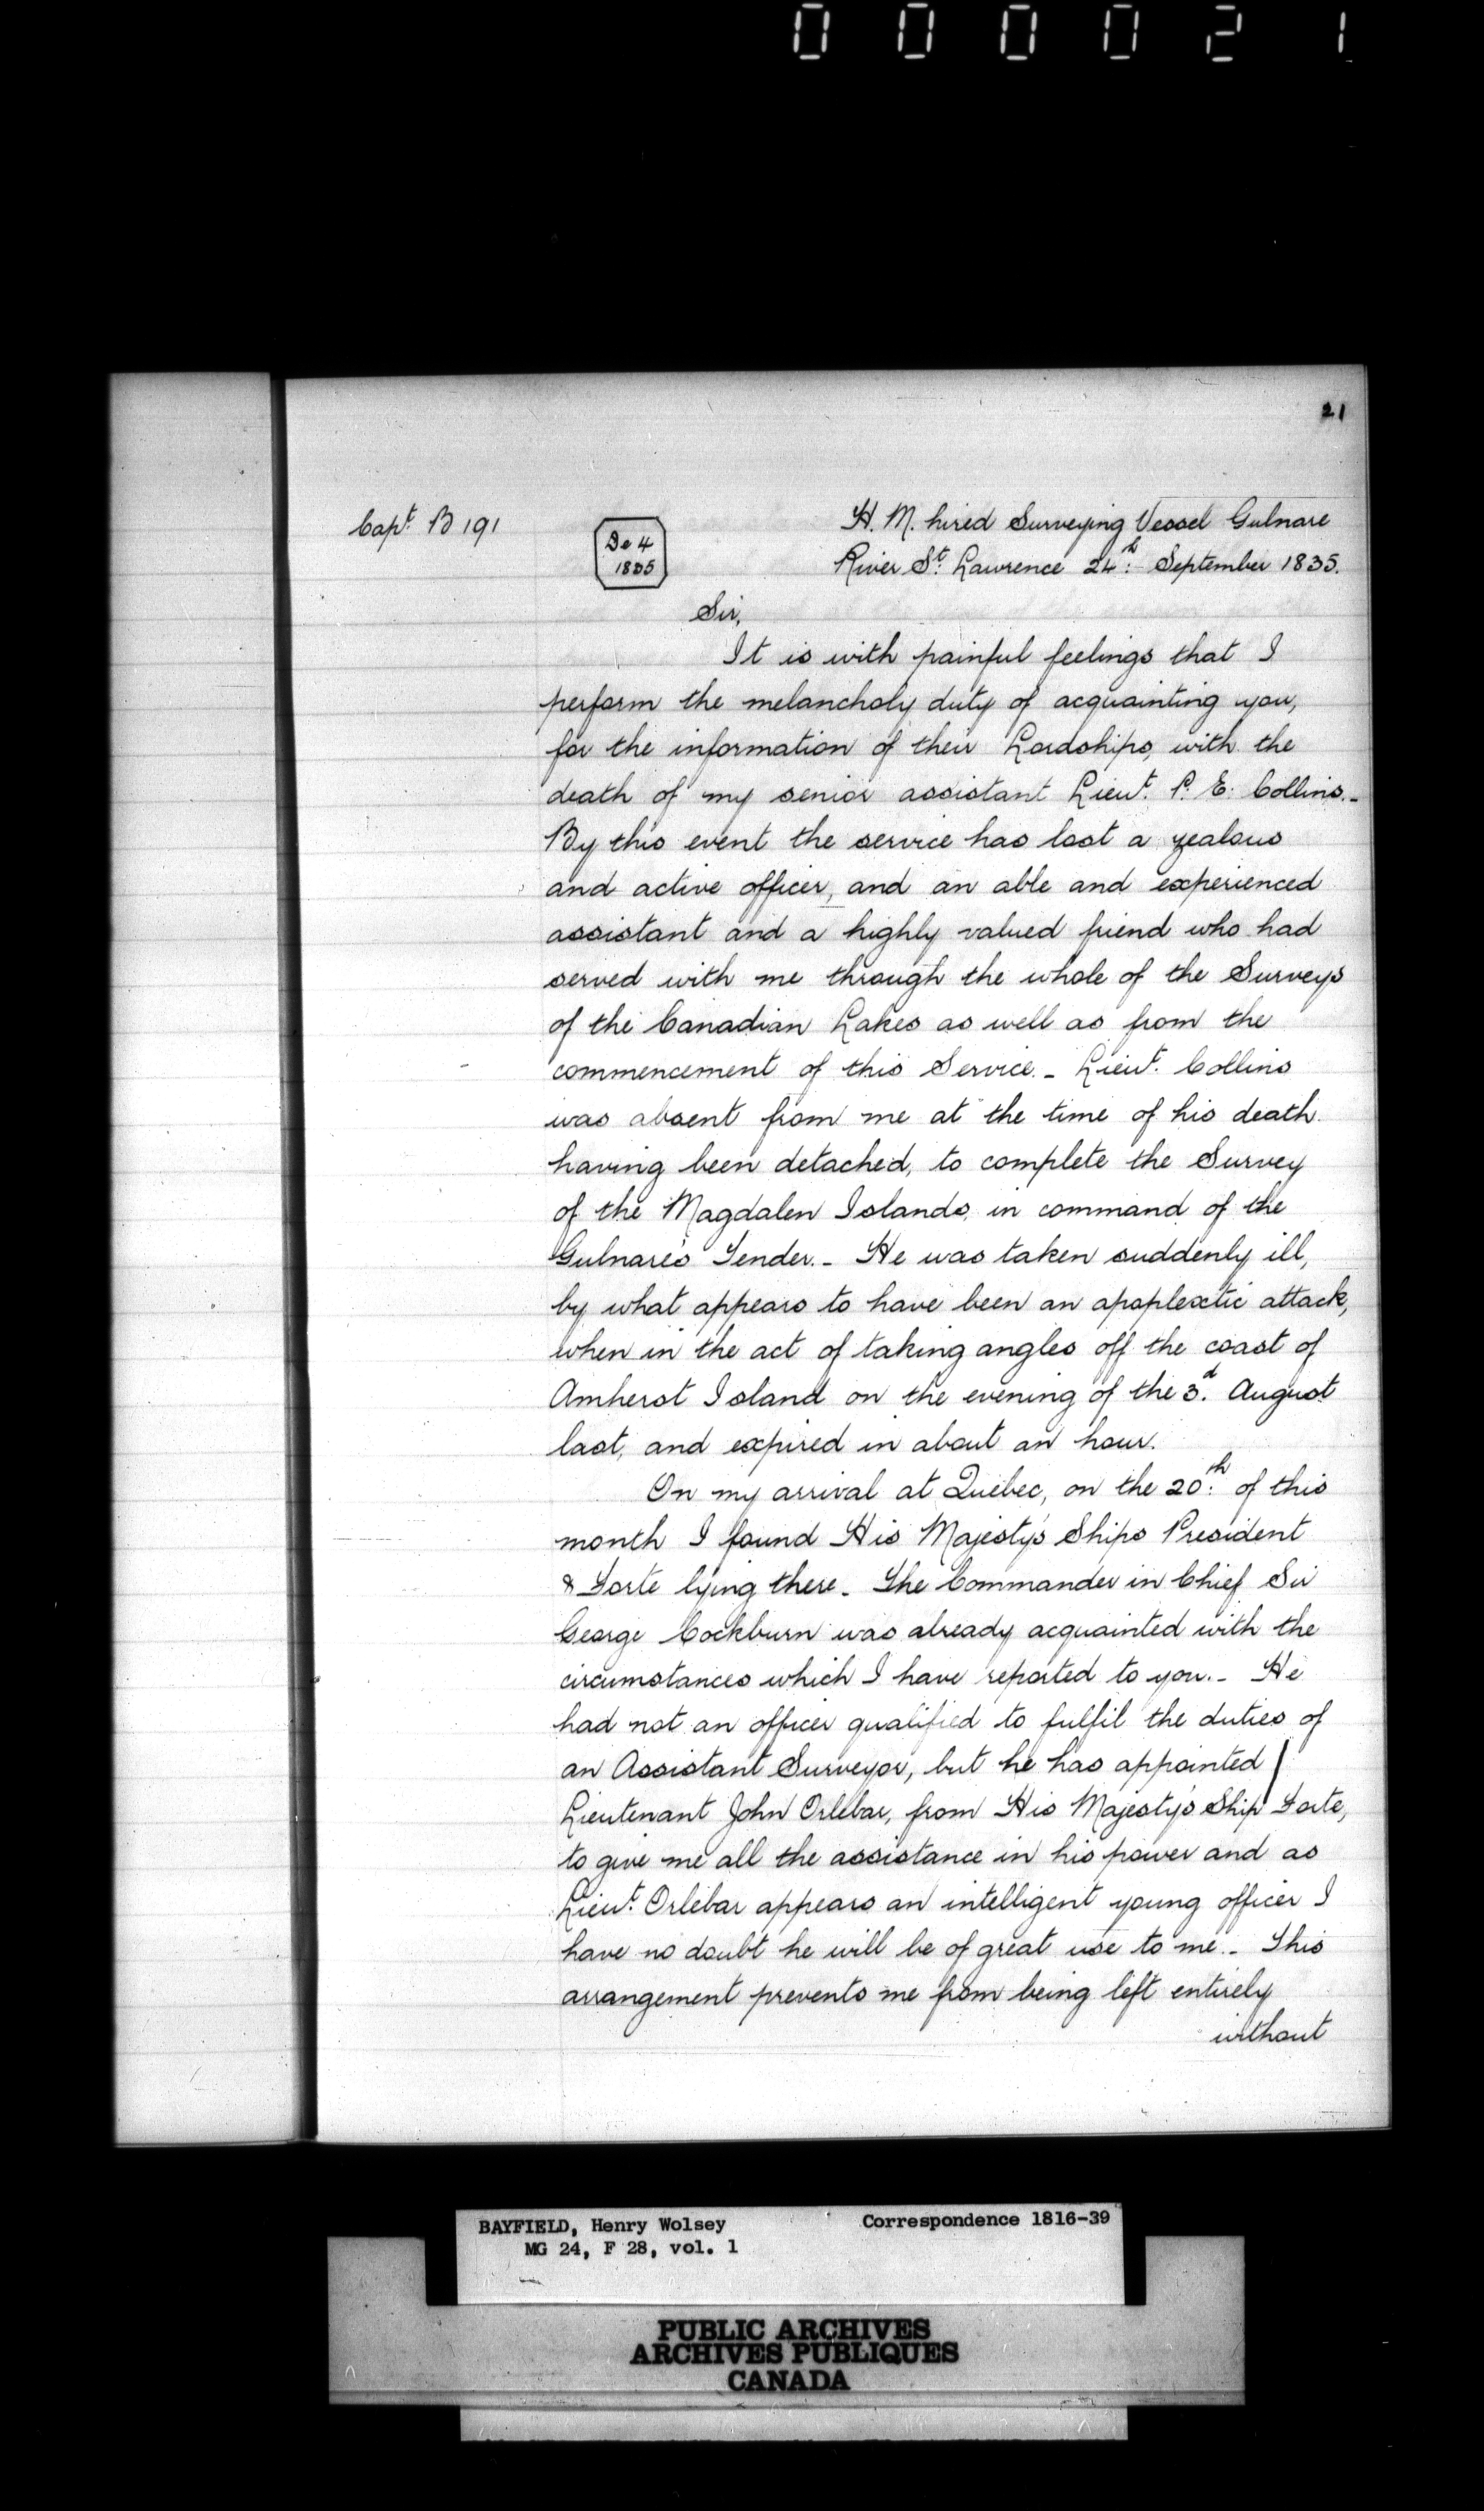 000021
21
Capt. B 191
De 4
1835
H. M. hired Surveying Vessel Gulnare
River St. Lawrence 24th. September 1835.
Sir,
It is with painful feelings that I
perform the melancholy duty of acquainting you,
for the information of their Lordships, with the
death of my senior assistant Lieut. P. E. Collins._
By this event the service has lost a zealous
and active officer, and an able and experienced
assistant and a highly valued friend who had
served with me through the whole of the Surveys
of the Canadian Lakes as well as from the
commencement of this Service._ Lieut. Collins
was absent from me at the time of his death
having been detached, to complete the Survey
of the Magdalen Islands, in command of the
Gulnare's Tender._ He was taken suddenly ill,
by what appears to have been an apoplectic attack,
when in the act of taking angles off the coast of
Amherst Island on the evening of the 3d. August
last, and expired in about an hour.
On my arrival at Quebec, on the 20th. of this
month I found His Majesty's Ships President
& Forte lying there_ The Commander in Chief Sir
George Cockburn was already acquainted with the
circumstances which I have reported to you._ He
had not an officer qualified to fulfil the duties of
an Assistant Surveyor, but he has appointed
Lieutenant John Orlebar, from His Majesty's Ship Forte,
to give me all the assistance in his power and as
Lieut. Orlebar appears an intelligent young officer I
have no doubt he will be of great use to me._ This
arrangement prevents me from being left entirely
without
BAYFIELD, Henry Wolsey Correspondence 1816-39
MG 24, F 28, vol. 1
PUBLIC ARCHIVES
ARCHIVES PUBLIQUES
CANADA